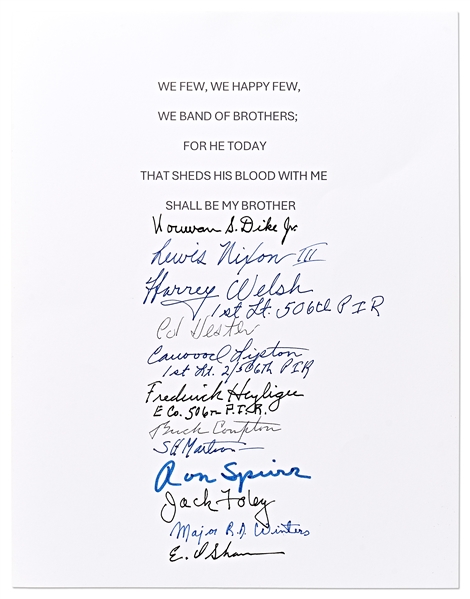 WE FEW, WE HAPPY FEW,
WE BAND OF BROTHERS;
FOR HE TODAY
THAT SHEDS HIS BLOOD WITH ME
SHALL BE MY BROTHER
Norman S. Dike Jr.
Lewis Nixon III
Harry Welsh
1st Lt. 506th P I R
Ed Hester
Carwood Lipton
1st Lt. 2/506th PIR
Frederick Heyliger
E Co. 506TH P.I.R.
Buck Compton
S H Matheson
Ron Speirs
Jack Foley
Major R.D. Winters
E. Shames